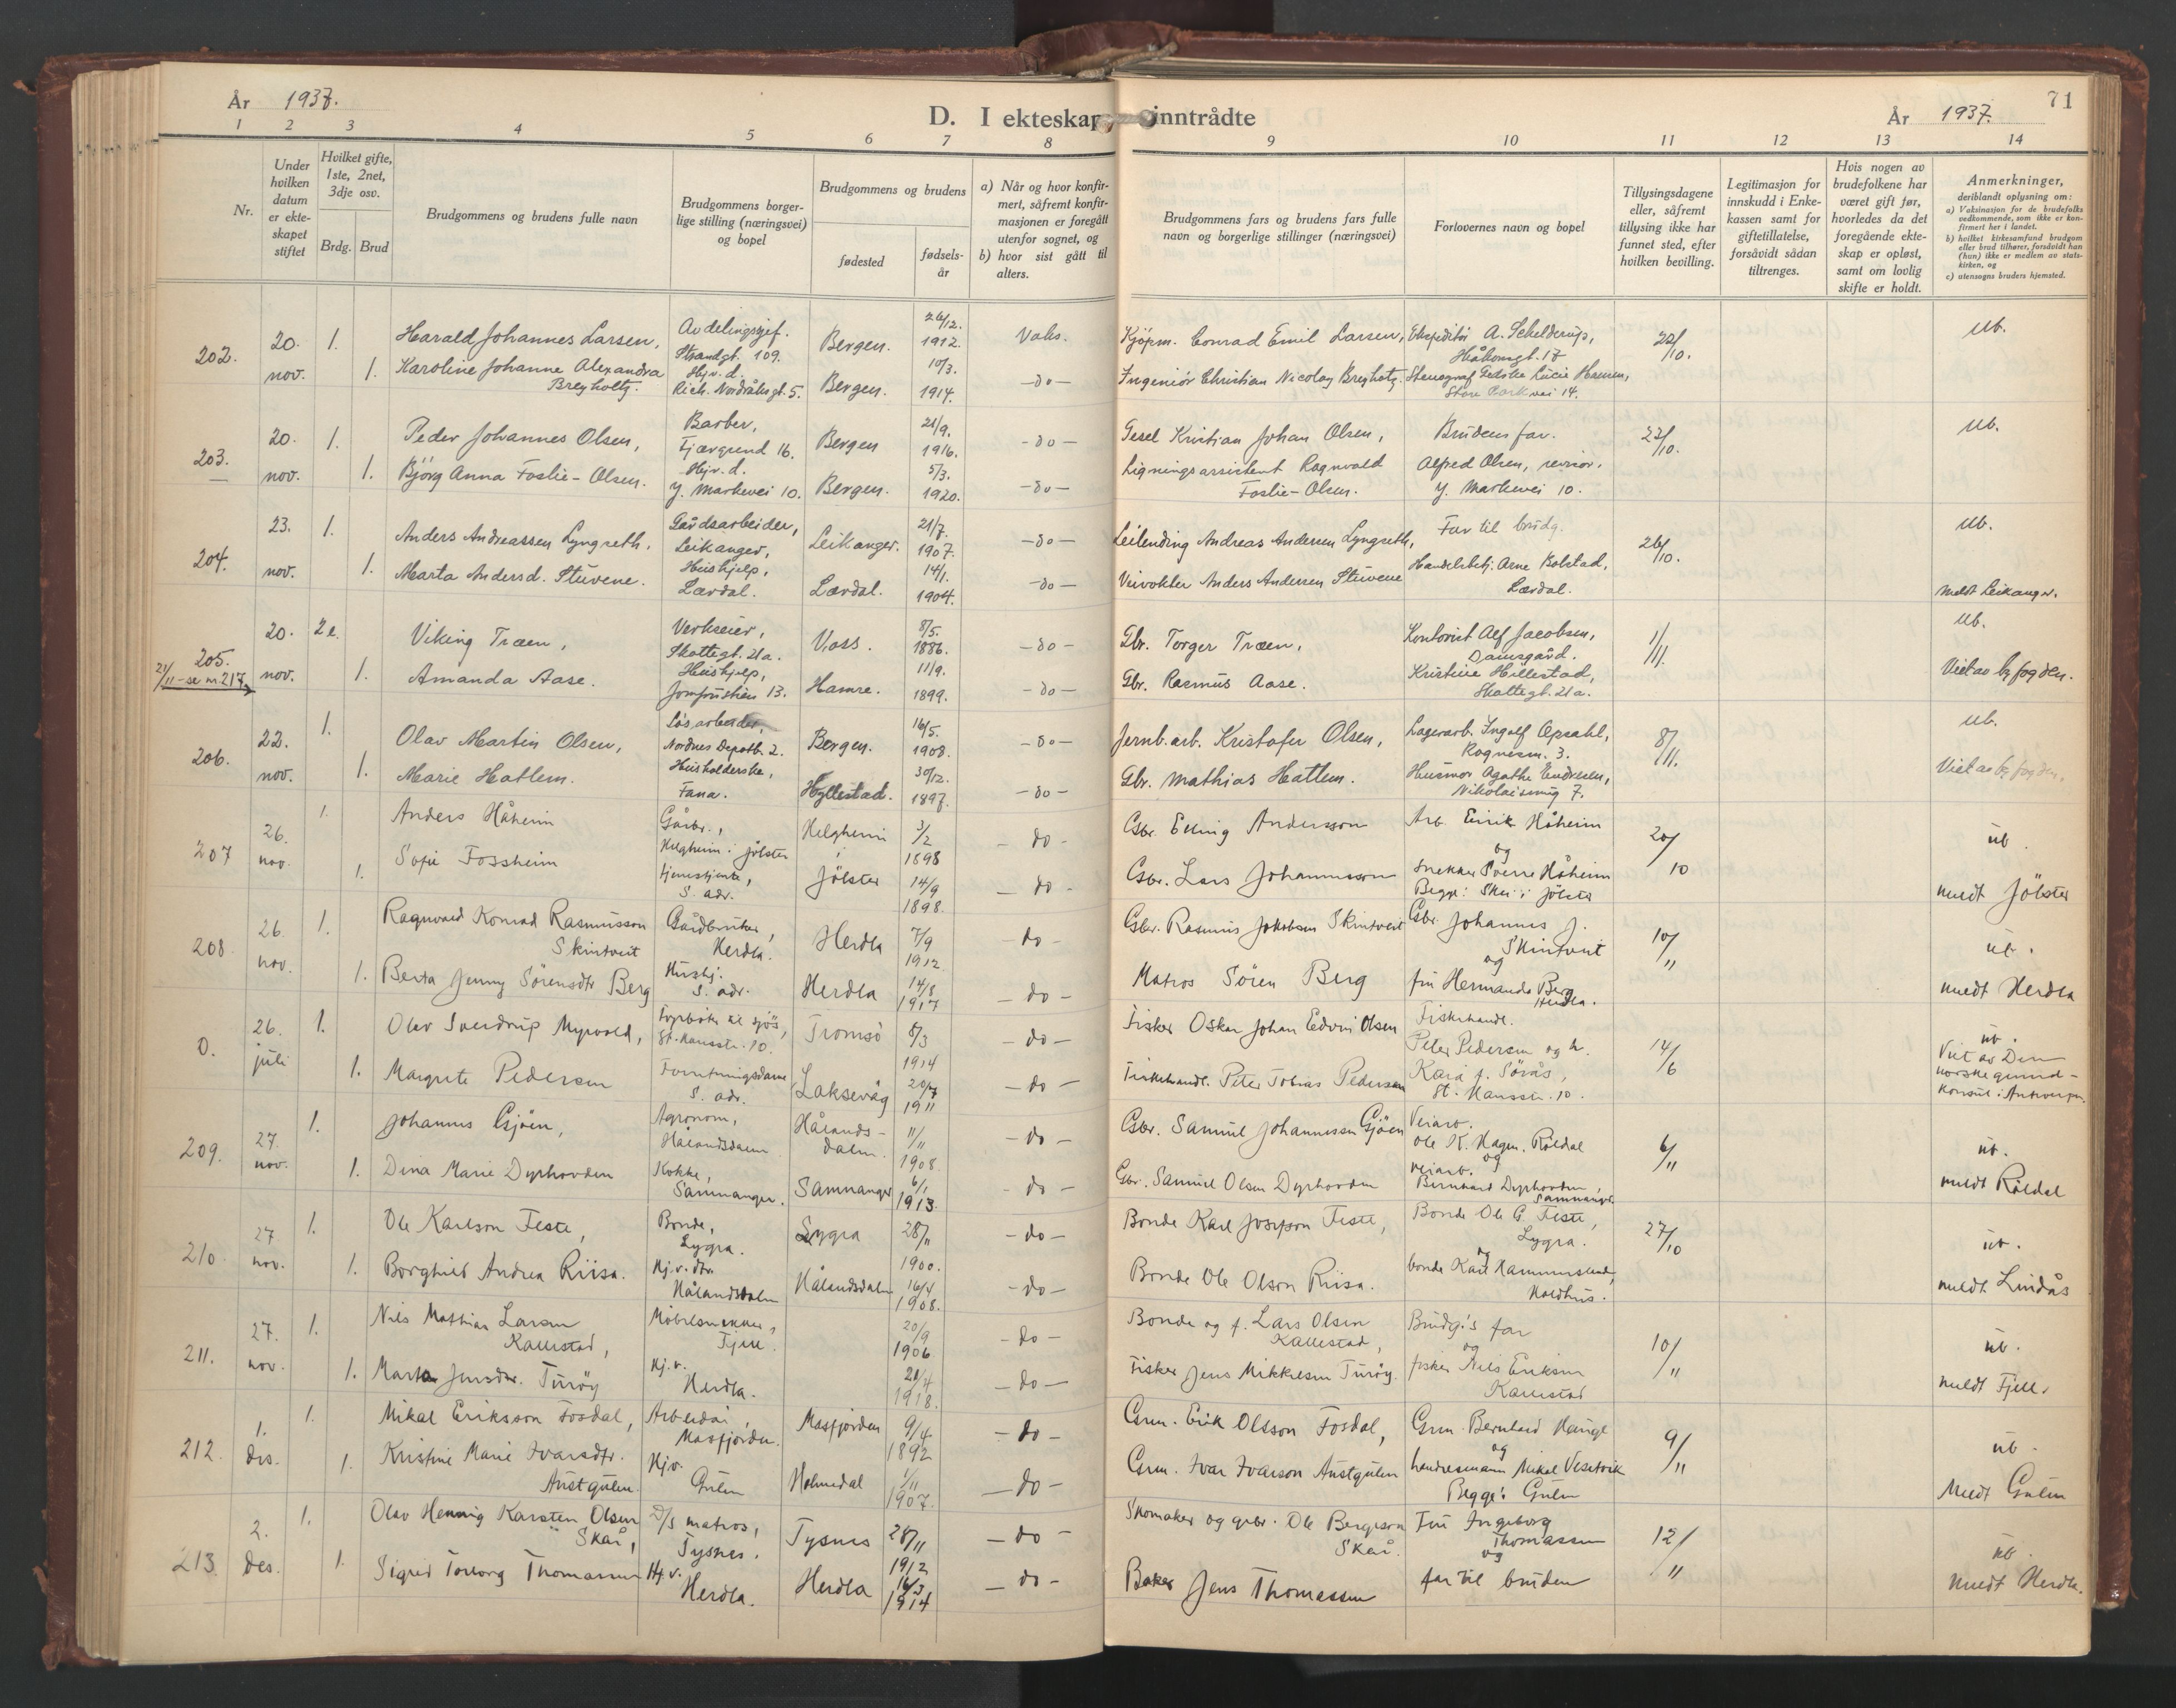 År 1937.
D. I ekteskap inntrådte
År 1937.
71
1 2 3 4 5 6 7 8 9 10 11 12 13 14
Nr.
Under hvilken datum er ekte-skapet stiftet
Hvilket gifte, 1ste, 2net, 3dje osv.
Brdg. Brud
Brudgommens og brudens fulle navn
Brudgommens borger-lige stilling (næringsvei) og bopel
Brudgommens og brudens
fødested
fødsels-år
a) Når og hvor konfir-mert, såfremt konfir-masjonen er foregått utenfor sognet, og
b) hvor sist gått til alters.
Brudgommens fars og brudens fars fulle navn og borgerlige stillinger (næringsvei)
Forlovernes navn og bopel
Tillysingsdagene eller, såfremt tillysing ikke har funnet sted, efter hvilken bevilling.
Legitimasjon for innskudd i Enke-kassen samt for giftetillatelse, forsåvidt sådan tiltrenges.
Hvis nogen av brudefolkene har været gift før, hvorledes da det foregående ekte-skap er opløst, samt om lovlig skifte er holdt.
Anmerkninger, deriblandt oplysning om:
a) Vaksinasjon for de brudefolks vedkommende, som ikke er kon-firmert her i landet.
b) hvilket kirkesamfund brudgom eller brud tilhører, forsåvidt han (hun) ikke er medlem av stats-kirken, og
c) utensogns bruders hjemsted.
202. 20. nov. 1. Harald Johannes Larsen, Avdelingssjef. Strandgt. 109. Bergen. 26/12. 1912. Vaks. Kjöpm. Conrad Emil Larsen, A. Schelderup, Håkonsgt. 17 22/10. ub.
1. Karoline Johanne Alexandra Breyholtz. Hjv. d. Rich. Nordråksgt. 5. Bergen. 10/3. 1914. -do- Ingeniör Christian Nicolay Breyholtz. Stenograf Lucie Hansen, Store Parkvei 14.
203. 20. nov. 1. Peder Johannes Olsen, Barber, Fjærgrend 16. Bergen 21/9. 1916. -do- Kristian Johan Olsen, Brudens far. 22/10. ub.
1. Björg Anna Foslie-Olsen. Hjv. d. Y. Markevei 10. Bergen. 5/3. 1920. -do- Ligningsassistent Ragnvald Foslie-Olsen. Alfred Olsen, revisor. Y. Markevei 10.
204. 23. nov. 1. Anders Andreassen Lyngseth. Gårdsarbeider, Leikanger, Leikanger. 21/7. 1907. -do- Leilending Andreas Andersen Lyngseth, Far til brudg. 26/10. ub.
1. Marta Andersd. Stuvene. Hushjelp, Lærdal. Lærdal. 14/1. 1904. -do- Veivokter Anders Andersen Stuvene Handelsbetj. Arne Bolstad, Lærdal. Meldt Leikanger.
205. 20. nov. 2e. Viking Træen, Verkseier, Skottegt. 21a. Voss. 8/5. 1886. -do- Gbr. Torger Træen, Kontorist Alf Jacobsen, Damsgård. 1/11. ub.
21/11 - se nr. 217 1. Amanda Aase. Hushjelp, Jomfrustien 13. Hamre. 11/9. 1899. -do- Gbr. Rasmus Aase. Kristine Hillestad, Skottegt. 21a. Viet av byfogden.
206. 22. nov. 1. Olav Martin Olsen, Løsarbeider, Nordnes 2. Bergen. 16/5. 1908. -do- Jernb.arb. Kristofer Olsen, Lagerarb. Ingolf Opsahl, 3. 8/11. ub.
1. Marie Hatlem. Husholderske, Fana. Hyllestad. 30/12. 1897. -do- Gbr. Mathias Hatlem. Husmor Agathe Endresen, Nikolaismug 7. Viet av byfogden.
207 26. nov. 1. Anders Håheim Gårbr., Helgheim i Jölster Helgheim 3/2 1898 -do- Gbr. Elling Andersson Arb. Eirik Håheim og 20/10 ub.
1. Sofie Fossheim S. adr. Jölster 14/9 1898. -do- Gbr. Lars Johannesson Snekker Sverre Håheim Begge: Skei i Jölster meldt Jölster
208 26. nov. 1. Ragnvald Konrad Rasmussen Skintveit Gårdbruker, Herdla. Herdla 7/9 1912 -do- Gbr. Rasmus Jakobsen Skintveit Gbr. Johannes J. Skintveit og 10/11 ub.
1. Berta Jenny Sörensdtr Berg Hushj. S. adr. Herdla 14/8 1917 -do- Matros Sören Berg fru Hermanda Berg Herdla. meldt Herdla
0. 26. juli 1. Olav Sverdrup Myrvold, Fyrböter til sjös, St. Hansstr. 10. Tromsö 8/3 1914 -do- Fisker Oskar Johan Edvin Olsen Fiskehandl. Peter Pedersen og h. 14/6 ub. Viet av Den norske general-konsul i Antwerpen.
1. Margrete Pedersen Forretningsdame S. adr. Laksevåg 20/7 1911 -do- Fiskehandl. Peter Tobias Pedersen Kara f. Sørås, St. Hansstr. 10.
209. 27. nov. 1. Johannes Gjöen, Agronom, Hålandsdalen Hålands-dalen. 11/11 1908. -do- Gbr. Samuel Johannessen Gjöen Veiarb. Ole K. Hagen, Röldal og 6/11 ub.
1. Dina Marie Dyrhovden Kokke, Samnanger. Samnanger 6/1 1913. -do- Gbr. Samuel Olsen Dyrhovden veiarb. Bernhard Dyrhovden, Samnanger meldt Röldal
210. 27 nov. 1. Ole Karlson Feste, Bonde, Lygra. Lygra 28/11 1900. -do- Bonde Karl Josefson Feste, Bonde Ole G. Feste, Lygra. og 27/10 ub.
1. Borghild Andrea Riisa. Hj.v. dtr. Hålandsdalen Hålandsdalen 16/4 1908. -do- Bonde Ole Olson Riisa. bonde Karl Hammersland, Holdhus. meldt Lindås
211. 27. nov. 1. Nils Mathias Larsen Kallestad, Möbelsnekker, Fjell. 20/9 1906 -do- Bonde og f. Lars Olsen Kallestad, Brudg's far og 10/11 ub.
1. Marta Jensdtr. Turöy Hj.v. Herdla. 21/4 1918. -do- Fisker Jens Mikkelsen Turöy. fisker Nils Eriksen Kallestad meldt Fjell.
212. 1. des. 1. Mikal Eriksson Fosdal, Arbeider, Masfjorden. Masfjorden 9/4 1892 -do- Grm. Erik Olsson Fosdal, Grm. Bernhard Hauge og 9/11 ub.
1. Kristine Marie Ivarsdtr. Austgulen. Hjv. Gulen Holmedal 1/11 1907. -do- Grm. Ivar Ivarson Austgulen handelsmann Mikal Begge: Gulen Meldt Gulen
213. 2. des. 1. Olav Henning Karsten Olsen Skår, D/S matros, Tysnes. Tysnes 28/11 1912 -do- Skomaker og gbr. Ole Bergeson Skår. Fru Ingeborg Thomassen og 12/11 ub.
1. Sigrid Torborg Thomassen Hj.v. Herdla. Herdla 16/3 1914 -do- Baker Jens Thomassen far til bruden meldt Herdla.